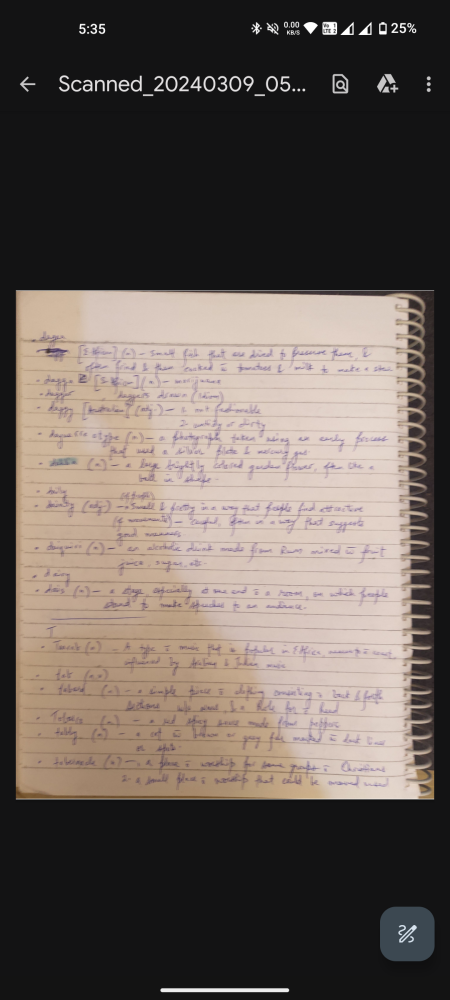 5:35
0.00
KB/S
Vo 1
LTE 2
25%
Scanned_20240309_05...
dagaa
[E African] (n) – small fish that are dried to preserve them, &
often fried & then cooked in tomatoes & milk to make a stew
dagga [S African] (n) – marijuana
dagger, daggers drawn
daggy [Australian] (adj) – 1. not fashionable
2. untidy or dirty
daguerreotype (n) – a photograph taken using an early process
that used a silver plate & mercury gas
(n) – a large brightly colored garden flower, often like a
ball in shape
daily
(of people)
dainty (adj) – small & pretty in a way that people find attractive
(of movements) – careful, often in a way that suggests
good manners
daiquiri (n) – an alcoholic drink made from rum mixed fruit
juice, sugar, etc.
dairy
dais (n) – a stage, especially at one end a room, on which people
stand to make speeches to an audience.
T
Taarab (n) – A type music that is popular in E Africa,
influenced by Arabian & Indian music
tab
tabard (n) – a simple piece clothing consisting back & front
sections w/o sleeves & a hole for head
Tabasco (n) – a red spicy sauce made from peppers
tabby (n) – a cat brown or grey fur marked dark lines
or spots
tabernacle (n) – 1. a place worship for some groups Christians
2. a small place worship that could be moved used